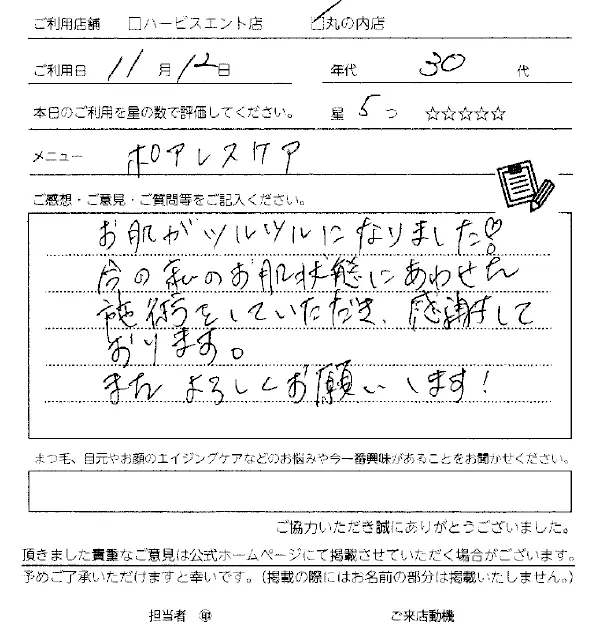 ご利用店舗 □ハービスエント店 ☑丸の内店
ご利用日 11月12日 年代 30代
本日のご利用を星の数で評価してください。 星 5つ ☆☆☆☆☆
メニュー ポアレスケア
ご感想・ご意見・ご質問等をご記入ください。
お肌がツルツルになりました♡!
今の私のお肌状態にあわせた
施術をしていただき、感謝して
おります。
また よろしくお願いします!
まつ毛、目元やお顔のエイジングケアなどのお悩みや今一番興味があることをお聞かせください。
ご協力いただき誠にありがとうございました。
頂きました貴重なご意見は公式ホームページにて掲載させていただく場合がございます。
予めご了承いただけますと幸いです。(掲載の際にはお名前の部分は掲載いたしません。)
担当者 ご来店動機